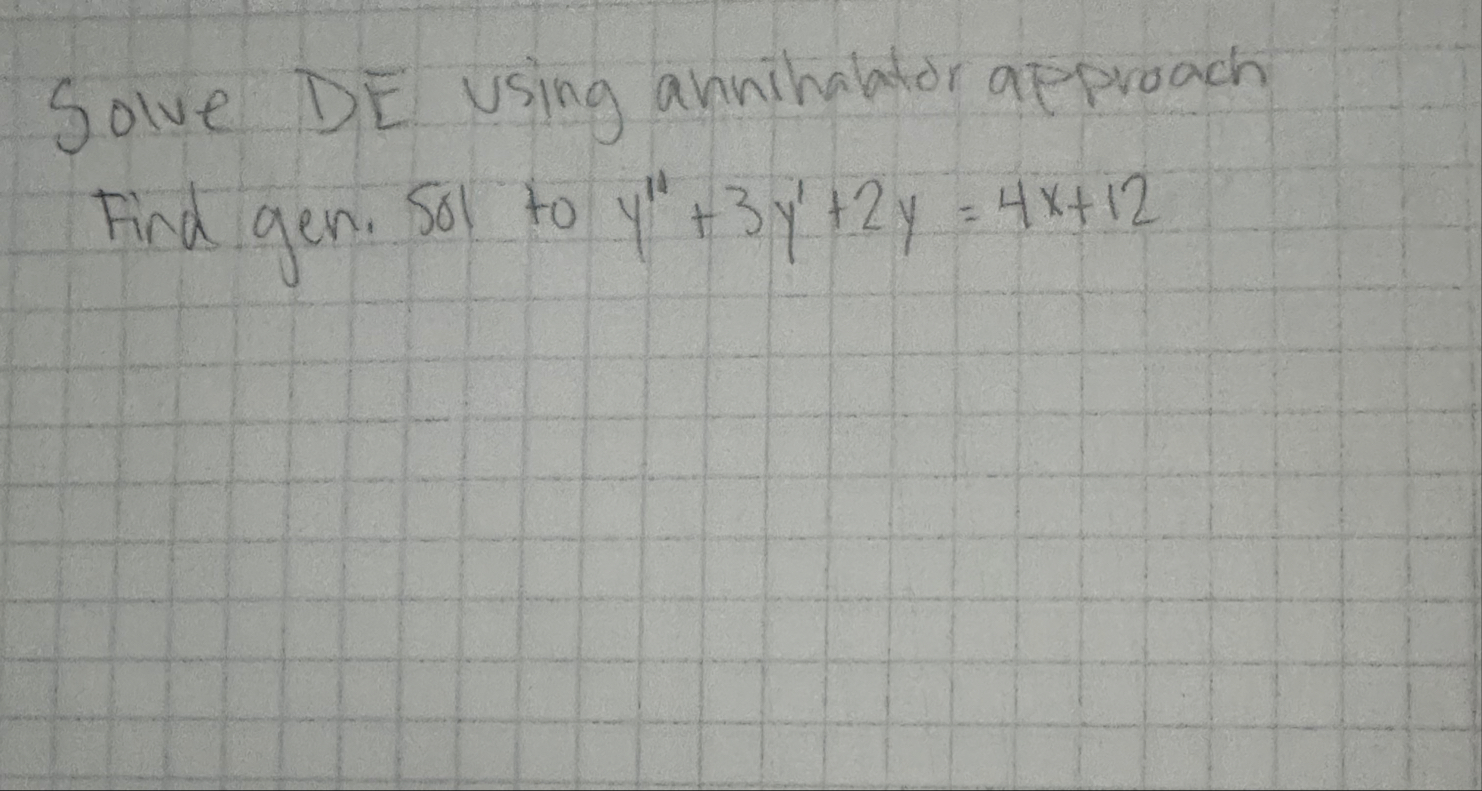 Solve DE using annihalator approach
Find gen. sol to y'' + 3y' + 2y = 4x+12